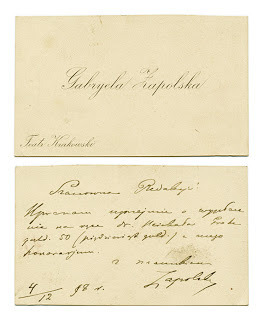 Gabryela Zapolska
Teatr Krakowski
Szanowna Redakcjo!
Upraszam uprzejmie o
nie na ręce dr.
guld. 50 (pięćdziesiąt guld.) z mego
honorarjum.
Z szacunkiem
Zapolska
4/12 98 r.